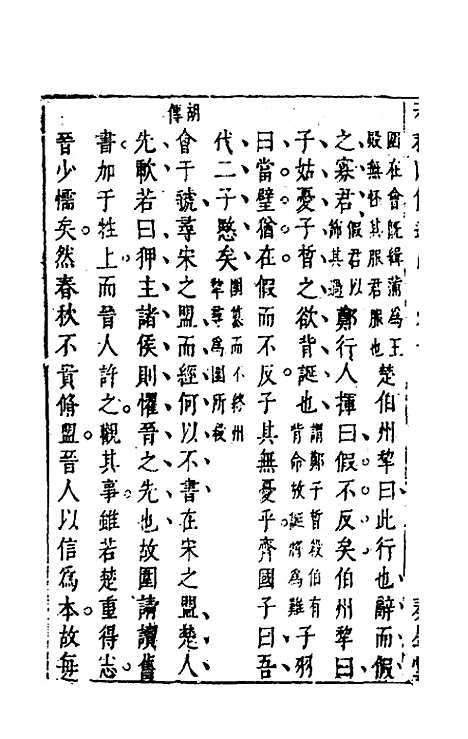 國在會既緝蒲為王
殿無怪其服君服也
楚伯州犂曰此行也辭而假
之寡君
假君以
飾其過
鄭行人揮曰假不反矣伯州犂曰
子姑憂子晳之欲背誕也
謂鄭子晳殺伯有
背命放誕將為難
子羽
曰當璧猶在假而不反子其無憂乎齊國子曰吾
代二子愍矣
圍篡而不終州
犂尋為圍所殺
胡傳
會于虢尋宋之盟而經何以不書在宋之盟楚人
先歃若曰狎主諸侯則懼晉之先也故圍請讀舊
書加于牲上而晉人許之觀其事雖若楚重得志
晉少懦矣然春秋不貴脩盟晉人以信為本故每